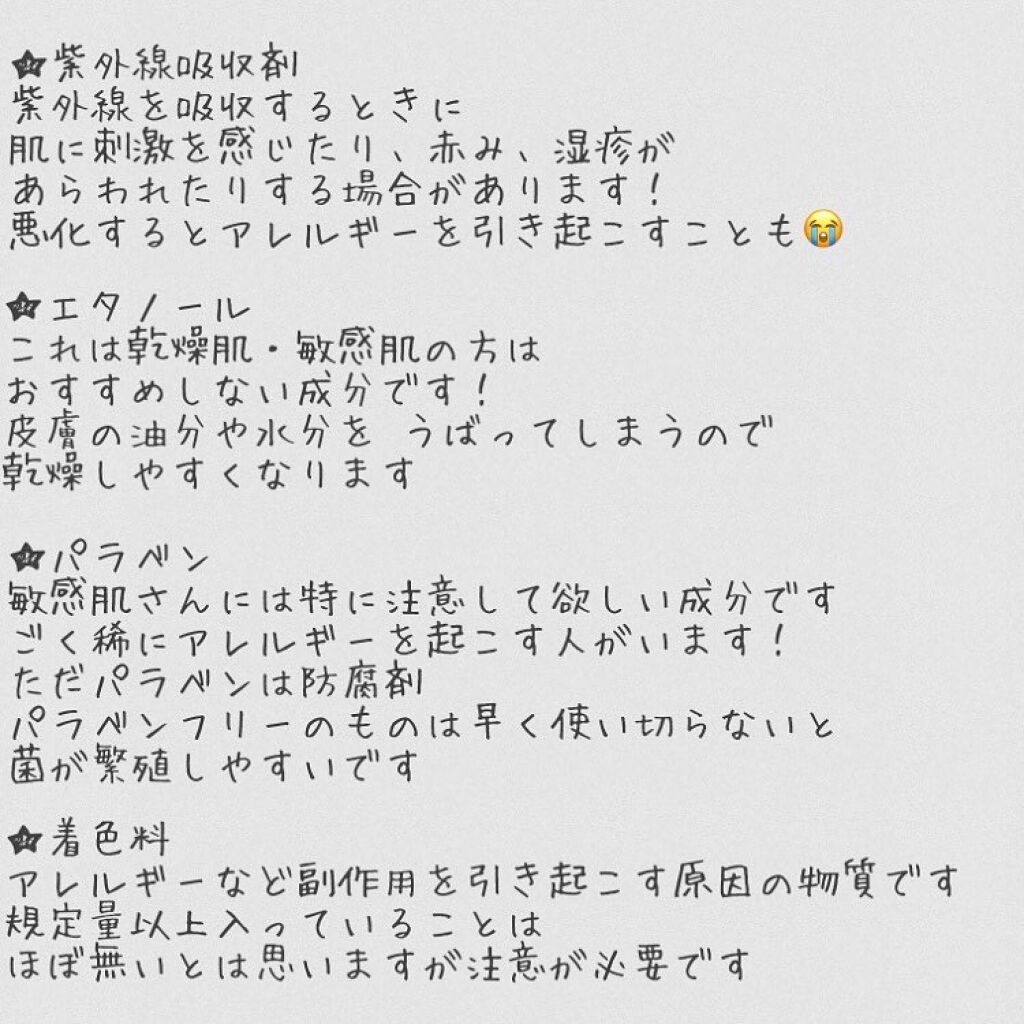 ★紫外線吸収剤
紫外線を吸収するときに
肌に刺激を感じたり、赤み、湿疹が
あらわれたりする場合があります！
悪化するとアレルギーを引き起こすことも😭
★エタノール
これは乾燥肌・敏感肌の方は
おすすめしない成分です！
皮膚の油分や水分を うばってしまうので
乾燥しやすくなります
★パラベン
敏感肌さんには特に注意して欲しい成分です
ごく稀にアレルギーを起こす人がいます！
ただパラベンは防腐剤
パラベンフリーのものは早く使い切らないと
菌が繁殖しやすいです
★着色料
アレルギーなど副作用を引き起こす原因の物質です
規定量以上入っていることは
ほぼ無いとは思いますが注意が必要です